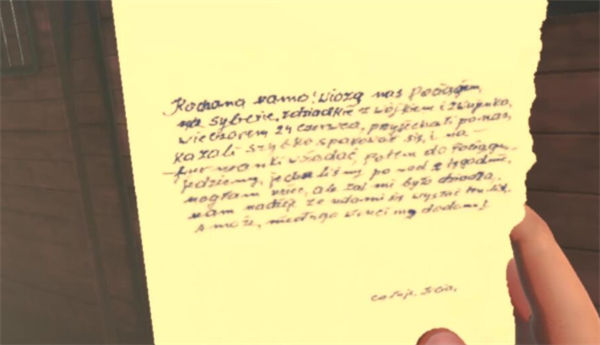 Kochana mamo! Wiozą nas pociągiem,
na syberię, z dziadkie z wójkiem i z wujenką,
wieczorem 24 czerwca, przyjechali po nas,
kazali szybko spakować się, i na
furmanki wsadać, potem do pociągu.
jedziemy, jechaliśmy ponad 2 tygodnie,
mogłam uciec, ale żal mi było dziadka.
mam nadzieje ze uda mi się wysłać ten list.
a może, niedługo wrócimy do domu!
całuje